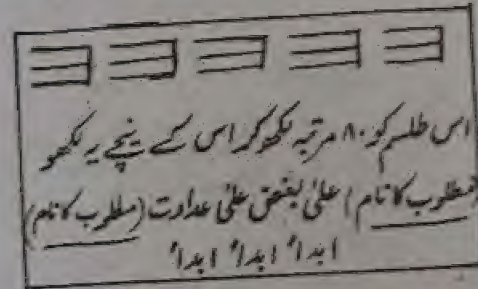 اس طلسم کو ۸۰ مرتبہ لکھو کر اس کے نیچے یہ لکھو
(مطلوب کا نام) علیٰ بغض علیٰ عداوت (مطلوب کا نام)
ابداً ابداً ابداً